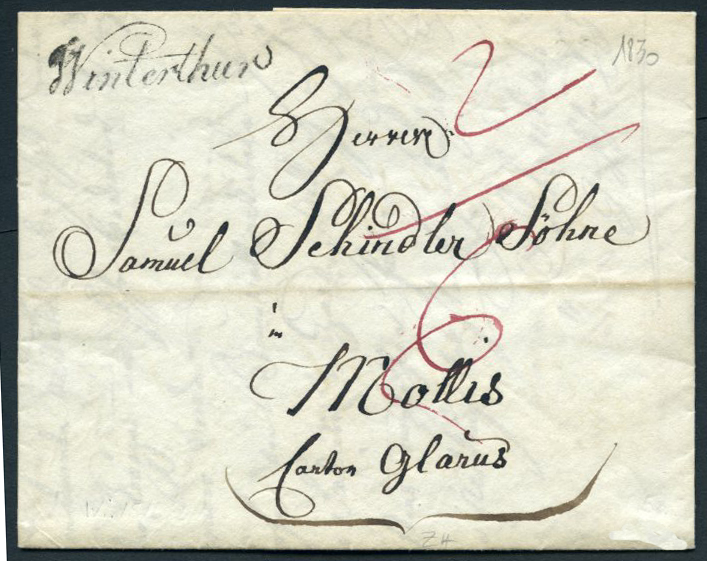 Winterthur
1830
Herren
Samuel Schindler Söhne
in
Mollis
Canton Glarus
ZH